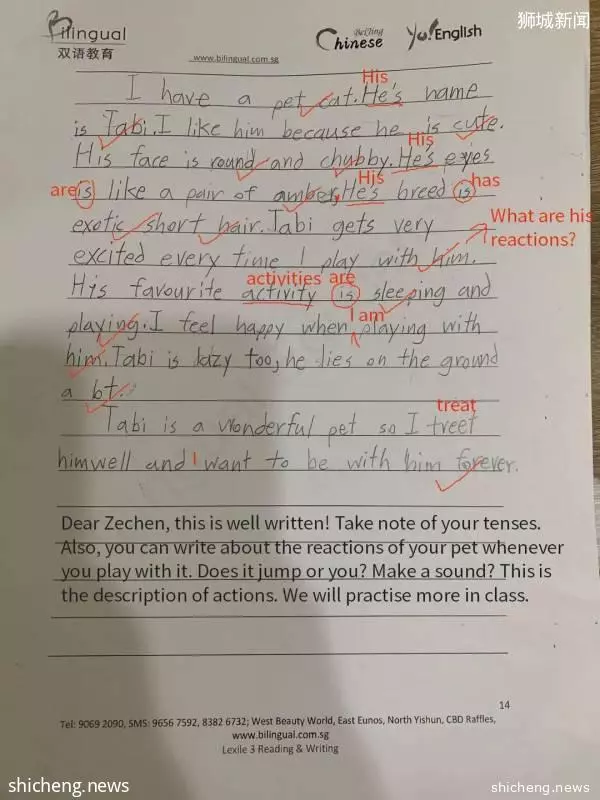 狮城新闻
Bilingual
双语教育
www.bilingual.com.sg
BeiJing
Chinese
Yo! English
His
I have a pet cat. He's name
is Tabi. I like him because he is cute.
His
His face is round and chubby. He's eyes
are His has
is like a pair of amber, He's breed is
exotic short hair. Tabi gets very
What are his
reactions?
excited every time I play with him.
activities are
His favourite activity is sleeping and
I am
playing. I feel happy when playing with
him. Tabi is lazy too, he lies on the ground
a bt.
treat
Tabi is a wonderful pet so I treet
himwell and I want to be with him forever.
Dear Zechen, this is well written! Take note of your tenses.
Also, you can write about the reactions of your pet whenever
you play with it. Does it jump or you? Make a sound? This is
the description of actions. We will practise more in class.
14
Tel: 9069 2090, SMS: 9656 7592, 8382 6732; West Beauty World, East Eunos, North Yishun, CBD Raffles,
www.bilingual.com.sg
Lexile 3 Reading & Writing
shicheng.news
shicheng.news